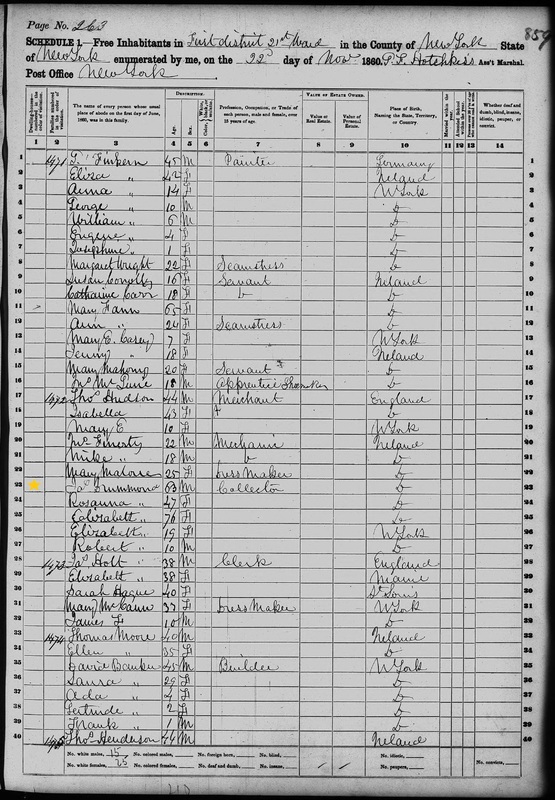 Page No. 263
859
SCHEDULE 1.—Free Inhabitants in First district 21st Ward in the County of New York State
of New York enumerated by me, on the 22d day of Nov 1860. P. L. Hotchkiss Ass't Marshal.
Post Office New York
DESCRIPTION.
VALUE OF ESTATE OWNED.
The name of every person whose usual place of abode on the first day of June, 1860, was in this family.
Age
Sex
Profession, Occupation, or Trade of each person, male and female, over 15 years of age.
Value of Real Estate.
Value of Personal Estate.
Place of Birth, Naming the State, Territory, or Country.
Whether deaf and dumb, blind, insane, idiotic, pauper, or convict.
1 2 3 4 5 6 7 8 9 10 11 12 13 14
1 1471 Finkern 45 M Painter Germany 1
2 Eliza " 42 F Ireland 2
3 Anna " 14 F N York 3
4 George " 10 M D 4
5 William " 6 M D 5
6 Eugene " 4 D 6
7 Josephine " 1 F D 7
8 Margaret Wright 22 F Seamstress D 8
9 Susan Conolly 16 F Servant Ireland 9
10 Catharine Carr 18 F D D 10
11 Mary Fann 65 F D 11
12 Ann " 24 F Seamstress D 12
13 Mary E. Casey 7 F N York 13
14 Jenny " 18 F Ireland 14
15 Mary Mahony 20 F Servant D 15
16 18 M Apprentice D 16
17 1472 Thos Hudson 44 M Merchant England 17
18 Isabella 43 F D 18
19 Mary E 10 F N York 19
20 22 M Mechanic Ireland 20
21 Mike " 18 M D D 21
22 Mary Malone 25 F Dress Maker D 22
23 Jas Drummond 63 M Collector D 23
24 Rosanna " 47 F D 24
25 Elizabeth " 76 F D 25
26 Elizabeth " 19 F N York 26
27 Robert " 10 M D 27
28 1473 Jas Holt " 38 M Clerk England 28
29 Elizabeth " 38 F Maine 29
30 Sarah Hague 40 F St Louis 30
31 Mary McCann 37 F Dress Maker N York 31
32 James F 10 M D 32
33 1474 Thomas Moore 40 M Ireland 33
34 Ellen " 35 F D 34
35 David Banker 45 M Builder N York 35
36 Laura " 29 F D 36
37 Ada " 4 F D 37
38 Gertrude " 2 F D 38
39 Frank " 1 M D 39
40 1475 Thos Henderson 44 M Ireland 40
No. white males, 15 No. colored males, No. foreign born, No. blind, No. idiotic, No. convicts,
No. white females, 25 No. colored females, No. deaf and dumb, No. insane, No. paupers,